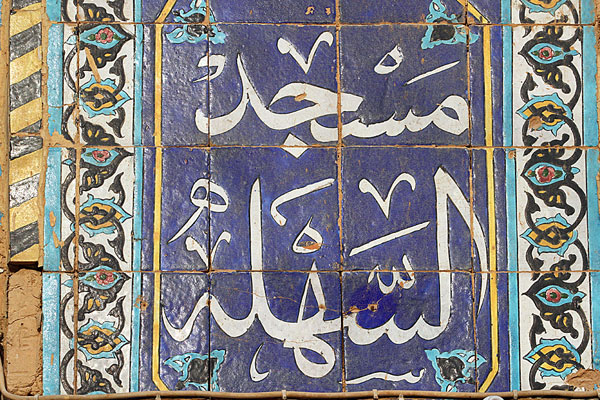 مسجد
السهله